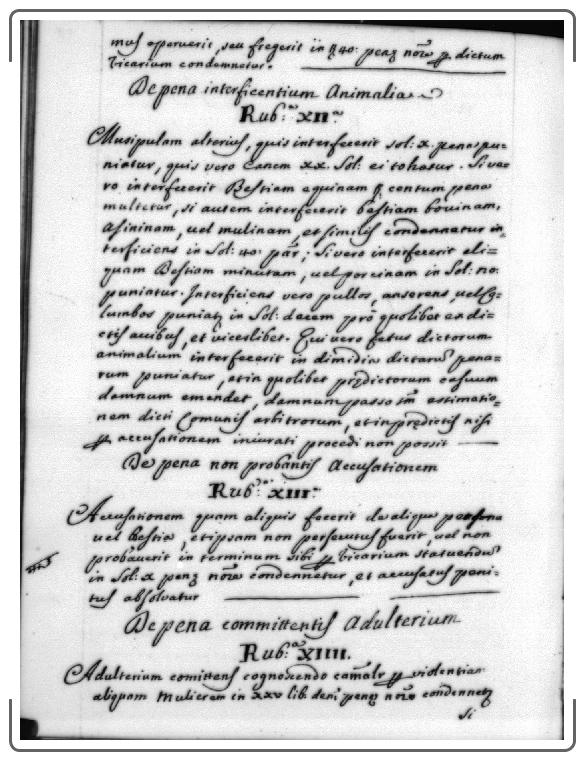 mus operuerit, seu fregerit in 40: penę nõie ꝑ dictum
Vicarium condemnetur.
De pena interficentium Animalia
Rub.ª XII.ª
Musipulam alterius, quis interfecerit sol: x. penas pu=
niatur, quis vero Canem xx. Sol: ei tollatur. Si ve=
ro interfecerit Bestiam equinam centum pena
multetur, si autem interfecerit bestiam bovinam,
Asininam, vel mulinam, et similis condennetur in=
terficiens in Sol: 40: par; Si vero interfecerit ali=
quam Bestiam minutam, vel porcinam in Sol: no:
puniatur. Interficiens vero pullos, anseres, vel Co=
lumbos puniatʒ in Sol: decem pro quolibet ex di=
ctis avibus, et viceslibet. Qui vero fetus dictorum
animalium interfecerit in dimidia dictarũ pena=
rum puniatur, et in quolibet prędictorum casuum
damnum emendet, damnum passo tm̃ estimatio=
nem dicti Comunis arbitrorum, et in prędictis nisi
ꝑ accusationem iniurati procedi non possit
De pena non probantis Accusationem
Rub.ª XIII.ª
Accusationem quam aliquis fecerit de aliqua persona
vel bestia, et ipsam non persecutus fuerit, vel non
probaverit in terminum sibi ꝑ Vicarium statuendũ
in Sol: x penę nõie condennetur, et accusatus peni=
tus absolvatur
De pena committentis Adulterium
Rub.ª XIIII.
Adulterium comittens cognoscendo carnalr ꝑ violentiam
aliquam Mulierem in xxv lib: den: penę nõie condennetʒ
Si